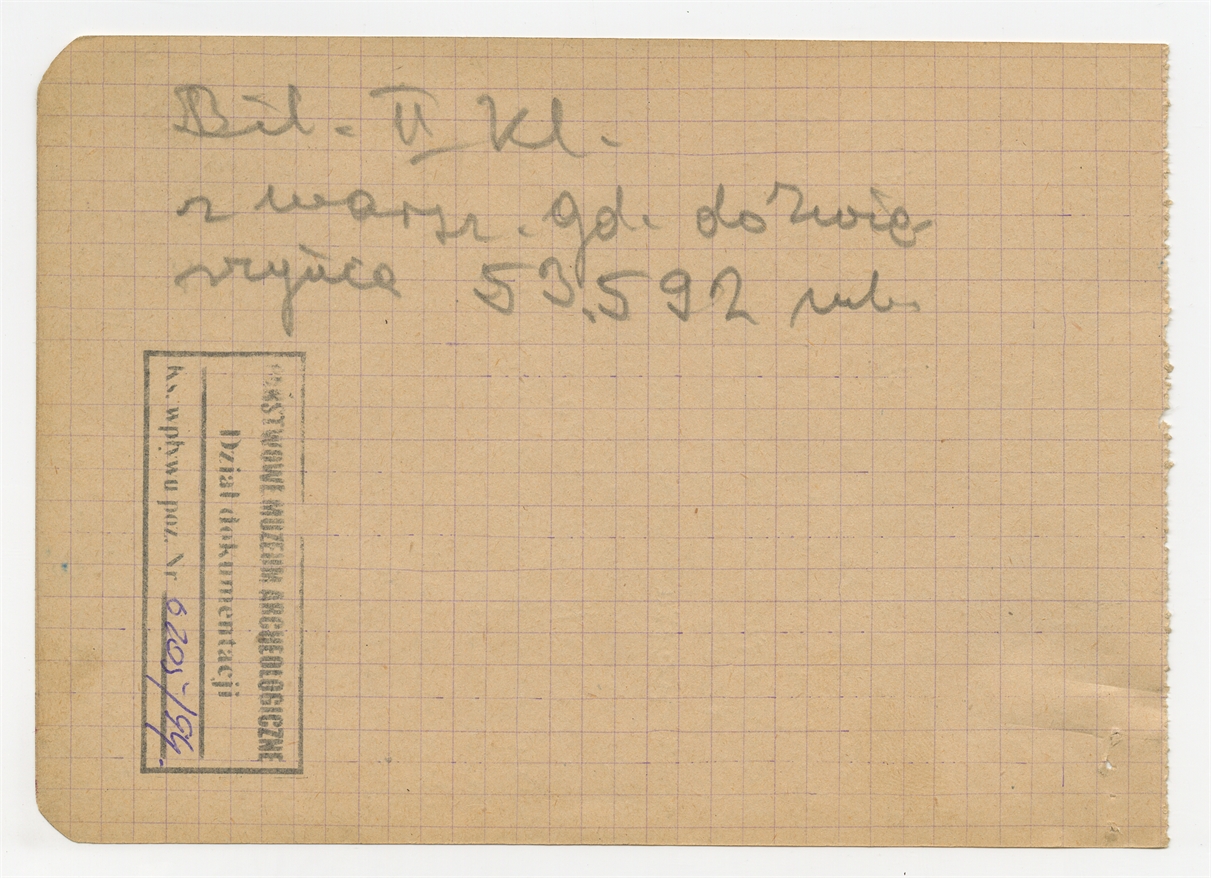 Bil. II Kl.
z warsz. gd. do Zwie
rzyńca 53.592 rub.
PAŃSTWOWE MUZEUM ARCHEOLOGICZNE
Dział dokumentacji
Kw. wpływu poz. Nr 6205/54.